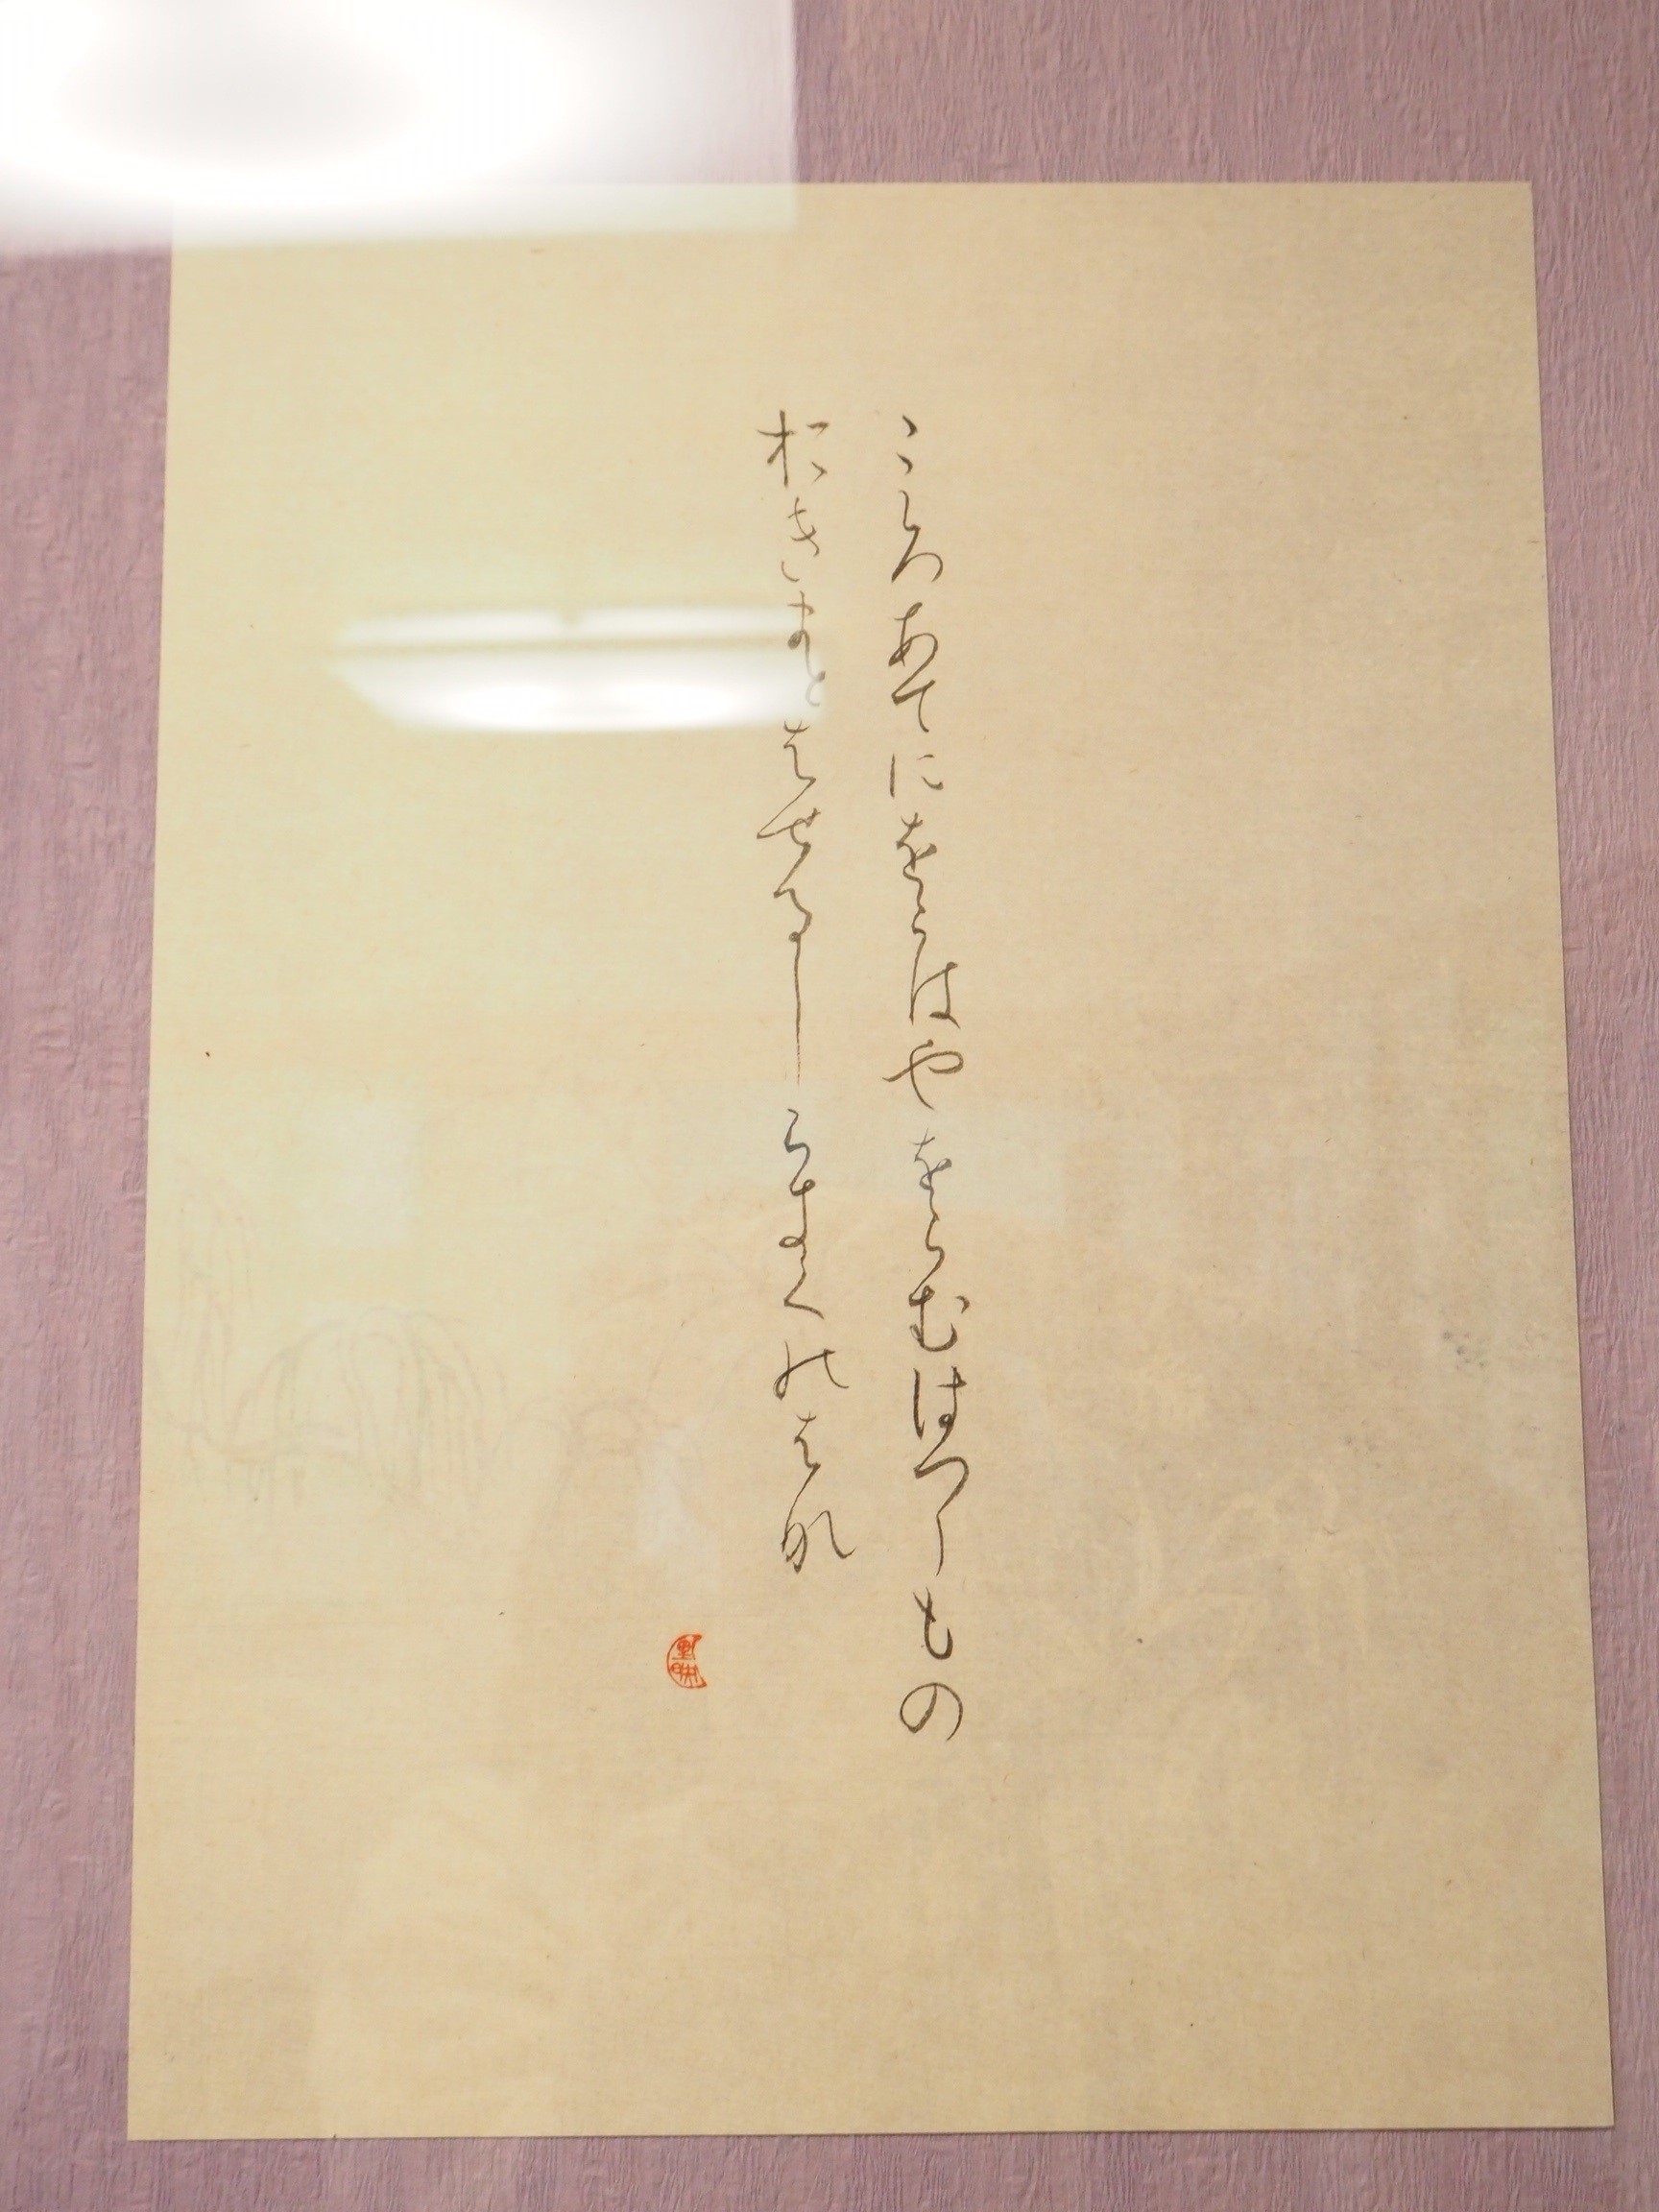 こころあてにをらはやをらむはつしもの
おきまとはせるしらきくのはな